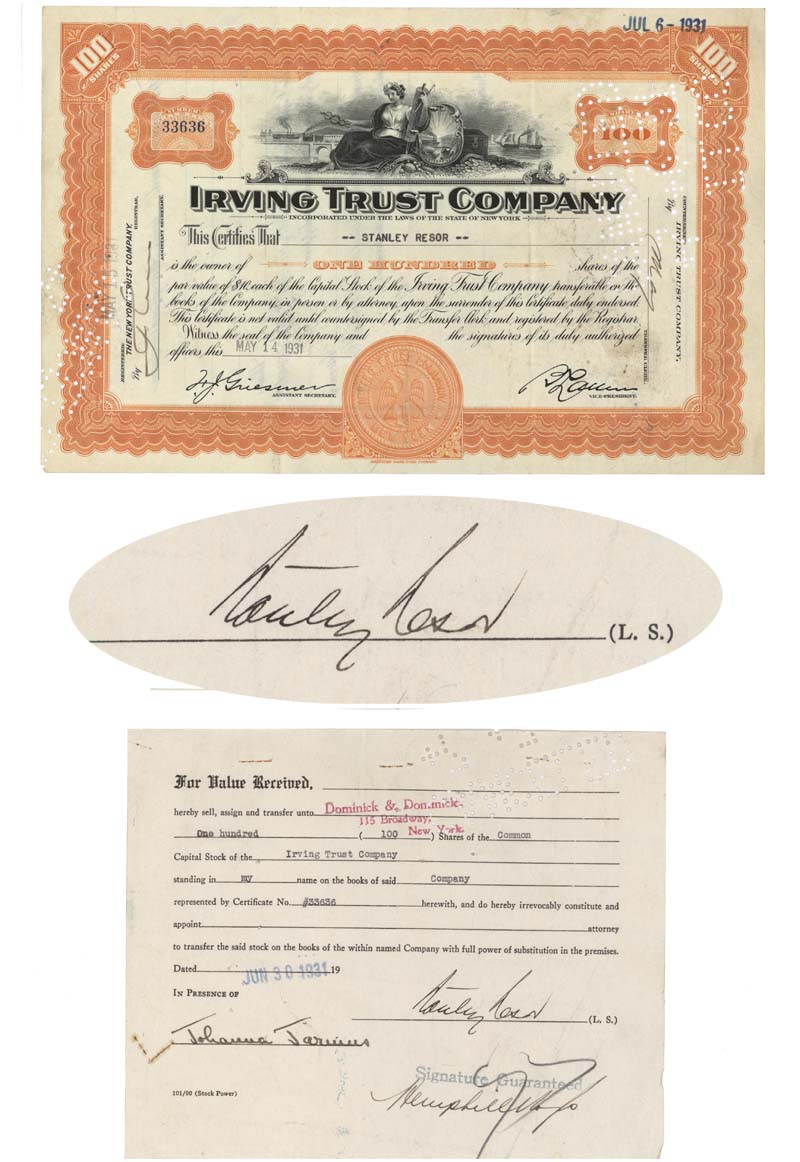 JUL 6 - 1931
100 SHARES
100 SHARES
NUMBER
33636
SHARES
100
IRVING TRUST COMPANY
INCORPORATED UNDER THE LAWS OF THE STATE OF NEW YORK
This Certifies That -- STANLEY RESOR --
is the owner of ONE HUNDRED shares of the
par value of $10. each of the Capital Stock of the Irving Trust Company transferable on the
books of the Company, in person or by attorney, upon the surrender of this Certificate duly endorsed.
This Certificate is not valid until countersigned by the Transfer Clerk and registered by the Registrar.
Witness the seal of the Company and the signatures of its duly authorized
officers this MAY 14 1931
H.J. Griesmer
ASSISTANT SECRETARY.
VICE-PRESIDENT.
REGISTERED:
THE NEW YORK TRUST COMPANY,
REGISTRAR,
By
ASSISTANT SECRETARY.
MAY 15 1931
COUNTERSIGNED:
IRVING TRUST COMPANY,
By
TRANSFER CLERK.
Stanley Resor (L. S.)
For Value Received,
hereby sell, assign and transfer unto Dominick & Dominick,
115 Broadway,
New York
One hundred ( 100 ) Shares of the Common
Capital Stock of the Irving Trust Company
standing in my name on the books of said Company
represented by Certificate No. #33636 herewith, and do hereby irrevocably constitute and
appoint attorney
to transfer the said stock on the books of the within named Company with full power of substitution in the premises.
Dated JUN 30 1931 19
IN PRESENCE OF
Stanley Resor (L. S.)
Johanna
Signature Guaranteed
101/00 (Stock Power)